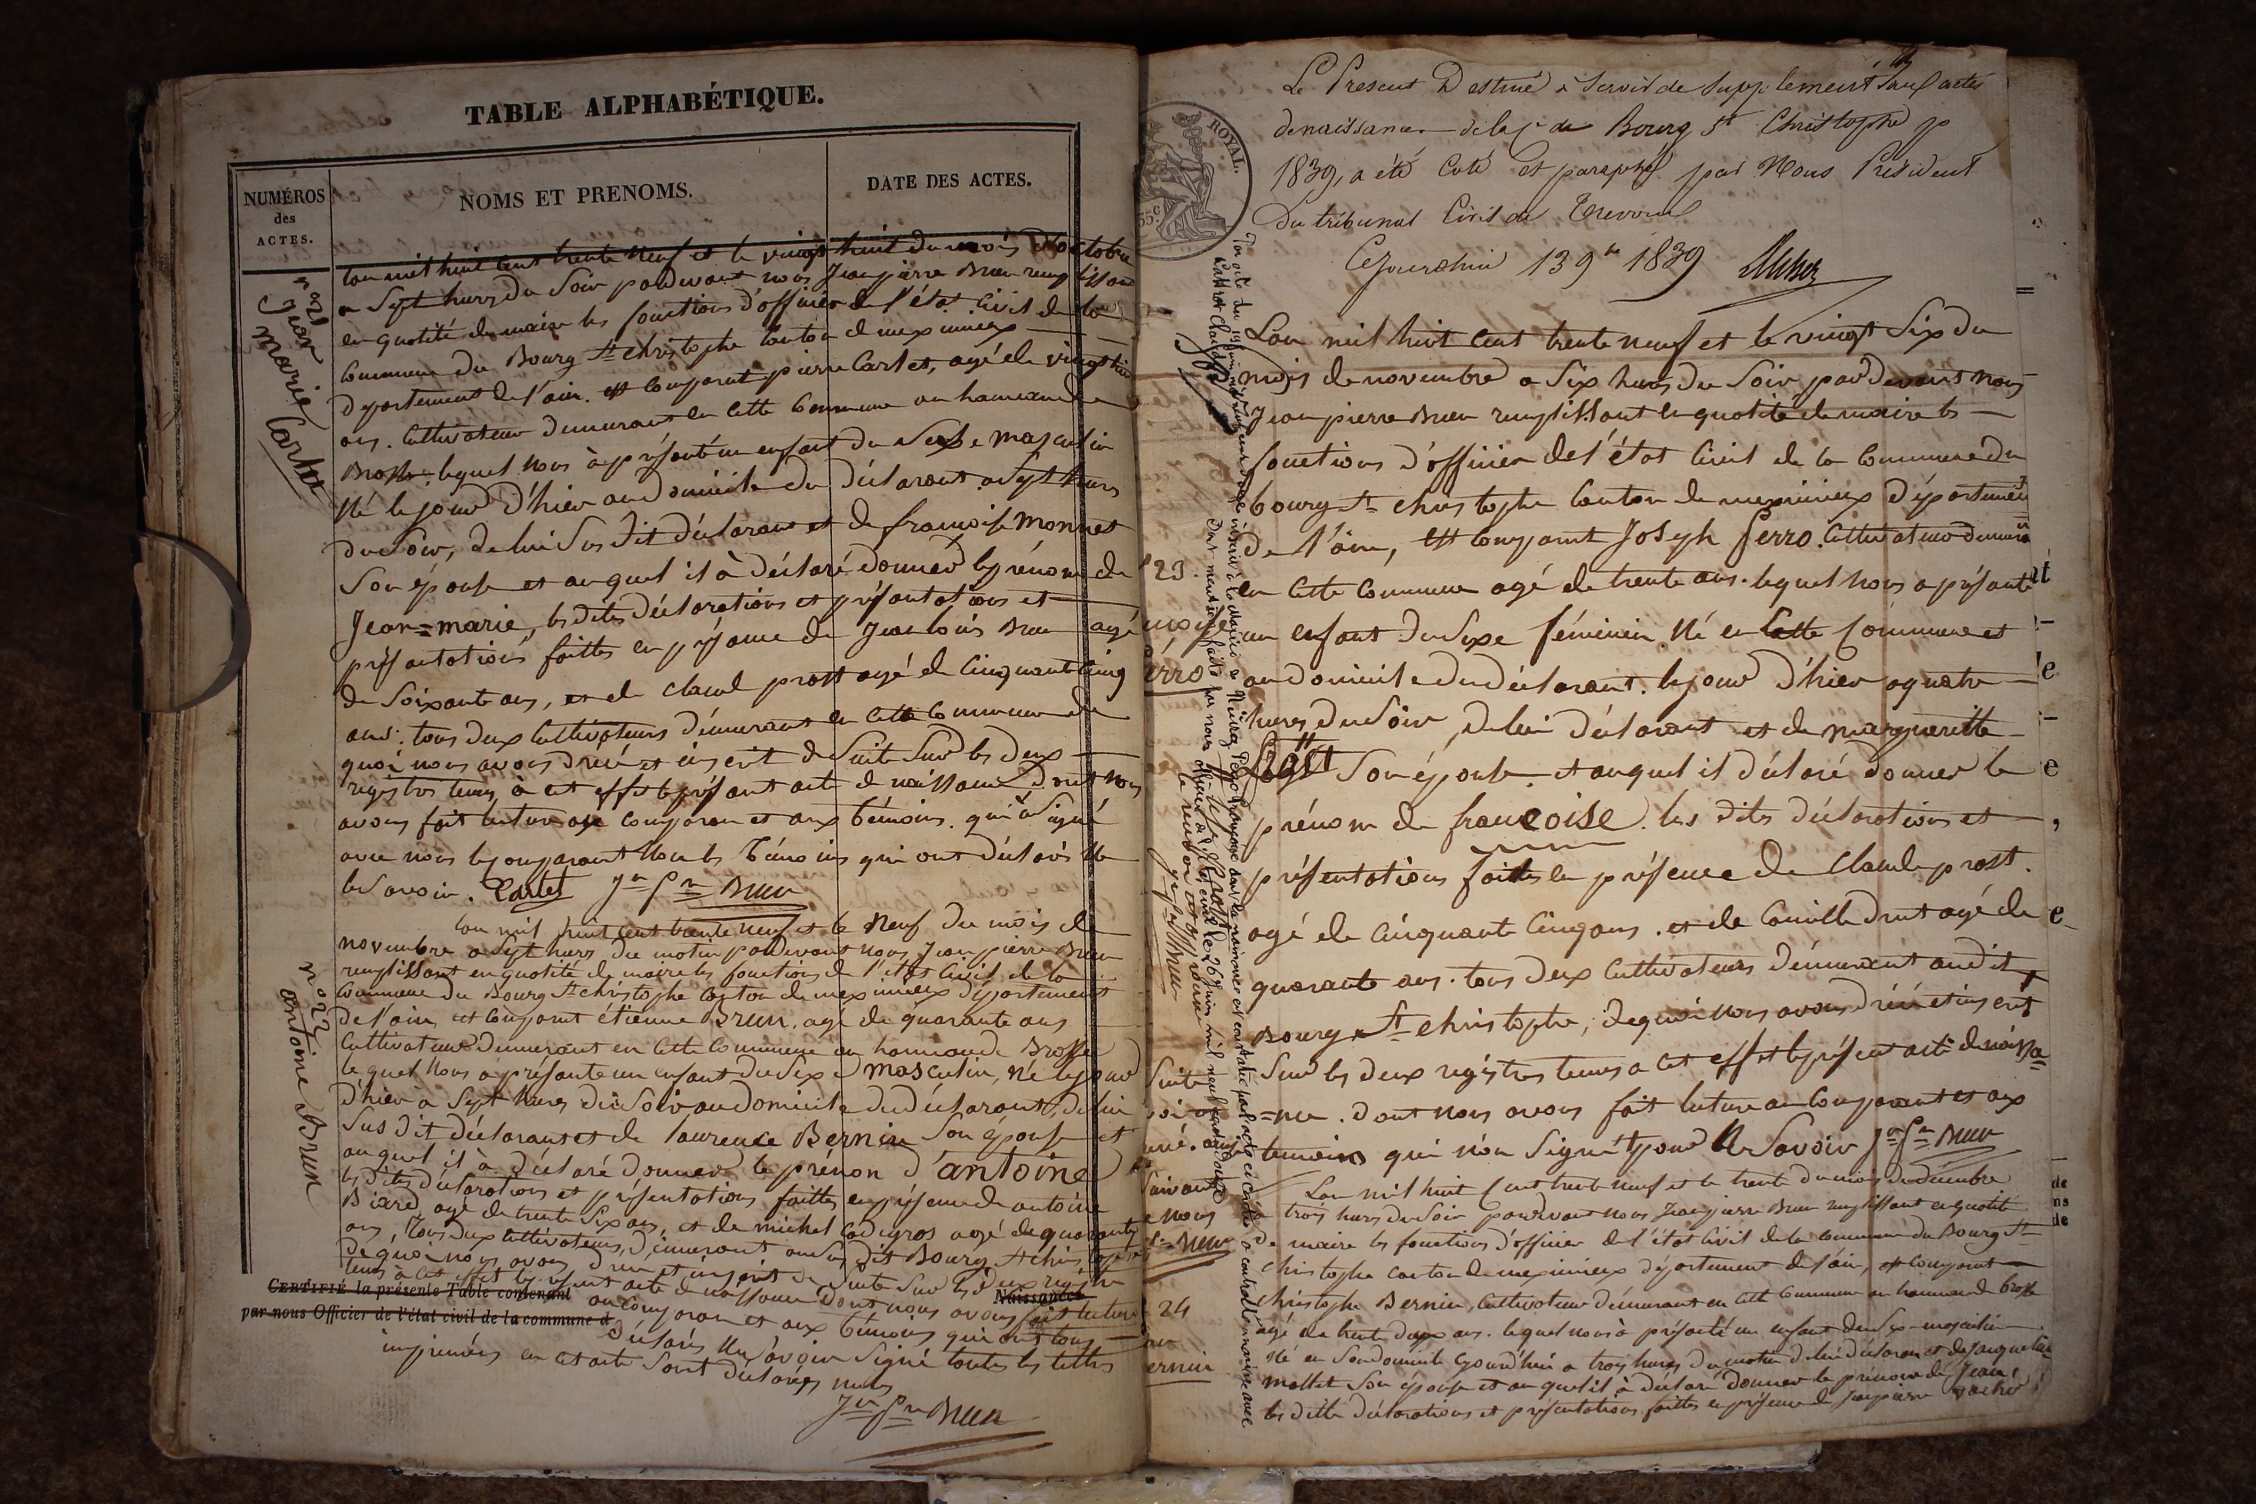 TABLE ALPHABÉTIQUE.
NUMÉROS
des
ACTES.
NOMS ET PRENOMS.
DATE DES ACTES.
n° 21
Jean
marie
Cartet
Lan mil huit cent trente neuf et le vingt huit du mois d'octobre
a Sept hures du Soir pardevant nous Jean pierre Brun remplissant
en quotité de maire les fonctions d'officier de l'état Civil de la
Commune du Bourg St christophe Canton de meximieux
département de l'ain. est Comparut pierre Cartet, agé de vingt huit
ans. Cultivateur demurant en Cette Commune au hameau de
Brosse. lequel nous à présenté un enfant du Sexe masculin
Né le jour d'hier au Domicile du déclarant a Sept hures
du Soir, de lui Sus dit déclarant et de françoise monnet
Son épouse et auquel il à déclaré donner les prénoms de
Jean=marie, les dites déclarations et présentations et
présentations faittes en présence de Jean louis Brun agé
de Soixante ans, et de Claude prost agé de Cinquante Cinq
ans. tous deux Cultivateurs demurant en Cette Commune de
quoi nous avons dréssé et inscrit de Suite Sur les deux
registres tenus à cet effet le présent acte de naissance dont nous
avons fait lecture au Comparant et aux témoins. qui à Signé
avec nous le comparant Non les témoins qui ont déclarés Ne
le Savoir. Cartet Jn Pre Brun
n° 22
antoine Brun
Lan mil huit cent trente neuf et le Neuf du mois de
novembre a Sept hures du matin pardevant nous Jean pierre Brun
remplissant en quotité de maire les fonctions de l'état Civil de la
Commune du Bourg St christophe Canton de meximieux département
de l'ain, est Comparut étienne Brun. agé de quarante ans
Cultivateur demurant en Cette Commune au hameau de Brosse
lequel Nous a présenté un enfant du Sexe masculin, Né le jour
d'hier a Sept hures du Soir au domicile du déclarant, de lui
Sus dit déclarant et de laurence Bernin Son épouse et
auquel il à déclaré donner le prénom d'antoine
les dites déclarations et présentations faittes en présence de antoine
Biard, agé de trente Six ans, et de michel Cadigros agé de quarante
ans, tous deux Cultivateurs, démurant au Sus dit Bourg St christophe
de quoi nous avons dressé et inscrit de Suite Sur les deux registres
tenus à cet effet le présent acte de naissance Dont nous avons fait lecture
CERTIFIÉ la présente Table contenant Naissances
au Comparant et aux témoins qui ont tous
par nous Officier de l'état civil de la commune d
déclarés Ne Savoir Signé toutes les lettres
imprimées en cet acte Sont déclarées nulles
Jn Pre Brun
Le Présent Destiné à Servir de Supplément aux actes
de naissances de la Ce de Bourg St Christophe pr
1839, a été Coté et paraphé par Nous Président
du tribunal Civil de Trevoux
Cejourdhui 13 9bre 1839
ROYAL.
Lan mil huit cent trente neuf et le vingt Six du
mois de novembre a Six hures du Soir pardevant nous
Jean pierre Brun remplissant en quotité de maire les
fonctions d'officier de l'état Civil de la Commune du
bourg St christophe Canton de meximieux département
de l'ain, est Comparut Joseph ferro. Cultivateur demurant
23.
en Cette Commune agé de trente ans. lequel Nous a présenté
un enfant du Sexe féminin Né en Cette Commune et
au domicile du déclarant. le jour d'hier a quatre
hures du Soir, de lui déclarant et de marguerite
Son épouse et auquel il déclaré donner le
prénom de françoise. les dites déclarations et
présentations faites en présence de Claude prost.
agé de Cinquante Cinq ans. et de Camille Drut agé de
quarante ans. tous deux Cultivateurs démurant audit
Bourg St christophe, de quoi nous avons dréssé et inscrit
Sur les deux registres tenus a cet effet le présent acte de naissa=
=nce. dont nous avons fait lecture au Comparant et aux
temoins qui n'on Signé pour Ne Savoir Jn Pre Brun
24
Bernin
Lan mil huit Cent trente neuf et le trente du mois de décembre
a trois hures du Soir pardevant nous Jean pierre Brun remplissant en quotité
de maire les fonctions d'officier de l'état Civil de la Commune du Bourg St
christophe canton de meximieux département de l'ain, est Comparut
christophe Bernin, Cultivateur démurant en Cette Commune au hameau de Brosse
agé de trente deux ans. lequel nous à présenté un enfant du Sexe masculin
Né en Son domicile Cejourd'hui a trois hures du matin de lui déclarant et de Jacqueline
mollet Son épouse et auquel il à déclaré donner le prénom de Jean,
les dittes déclarations et présentations faittes en présence de Jean pierre